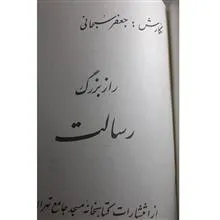 نگارش : جعفر سبحانی
راز بزرگ
رسالت
از انتشارات کتابخانه مسجد جامع تهران